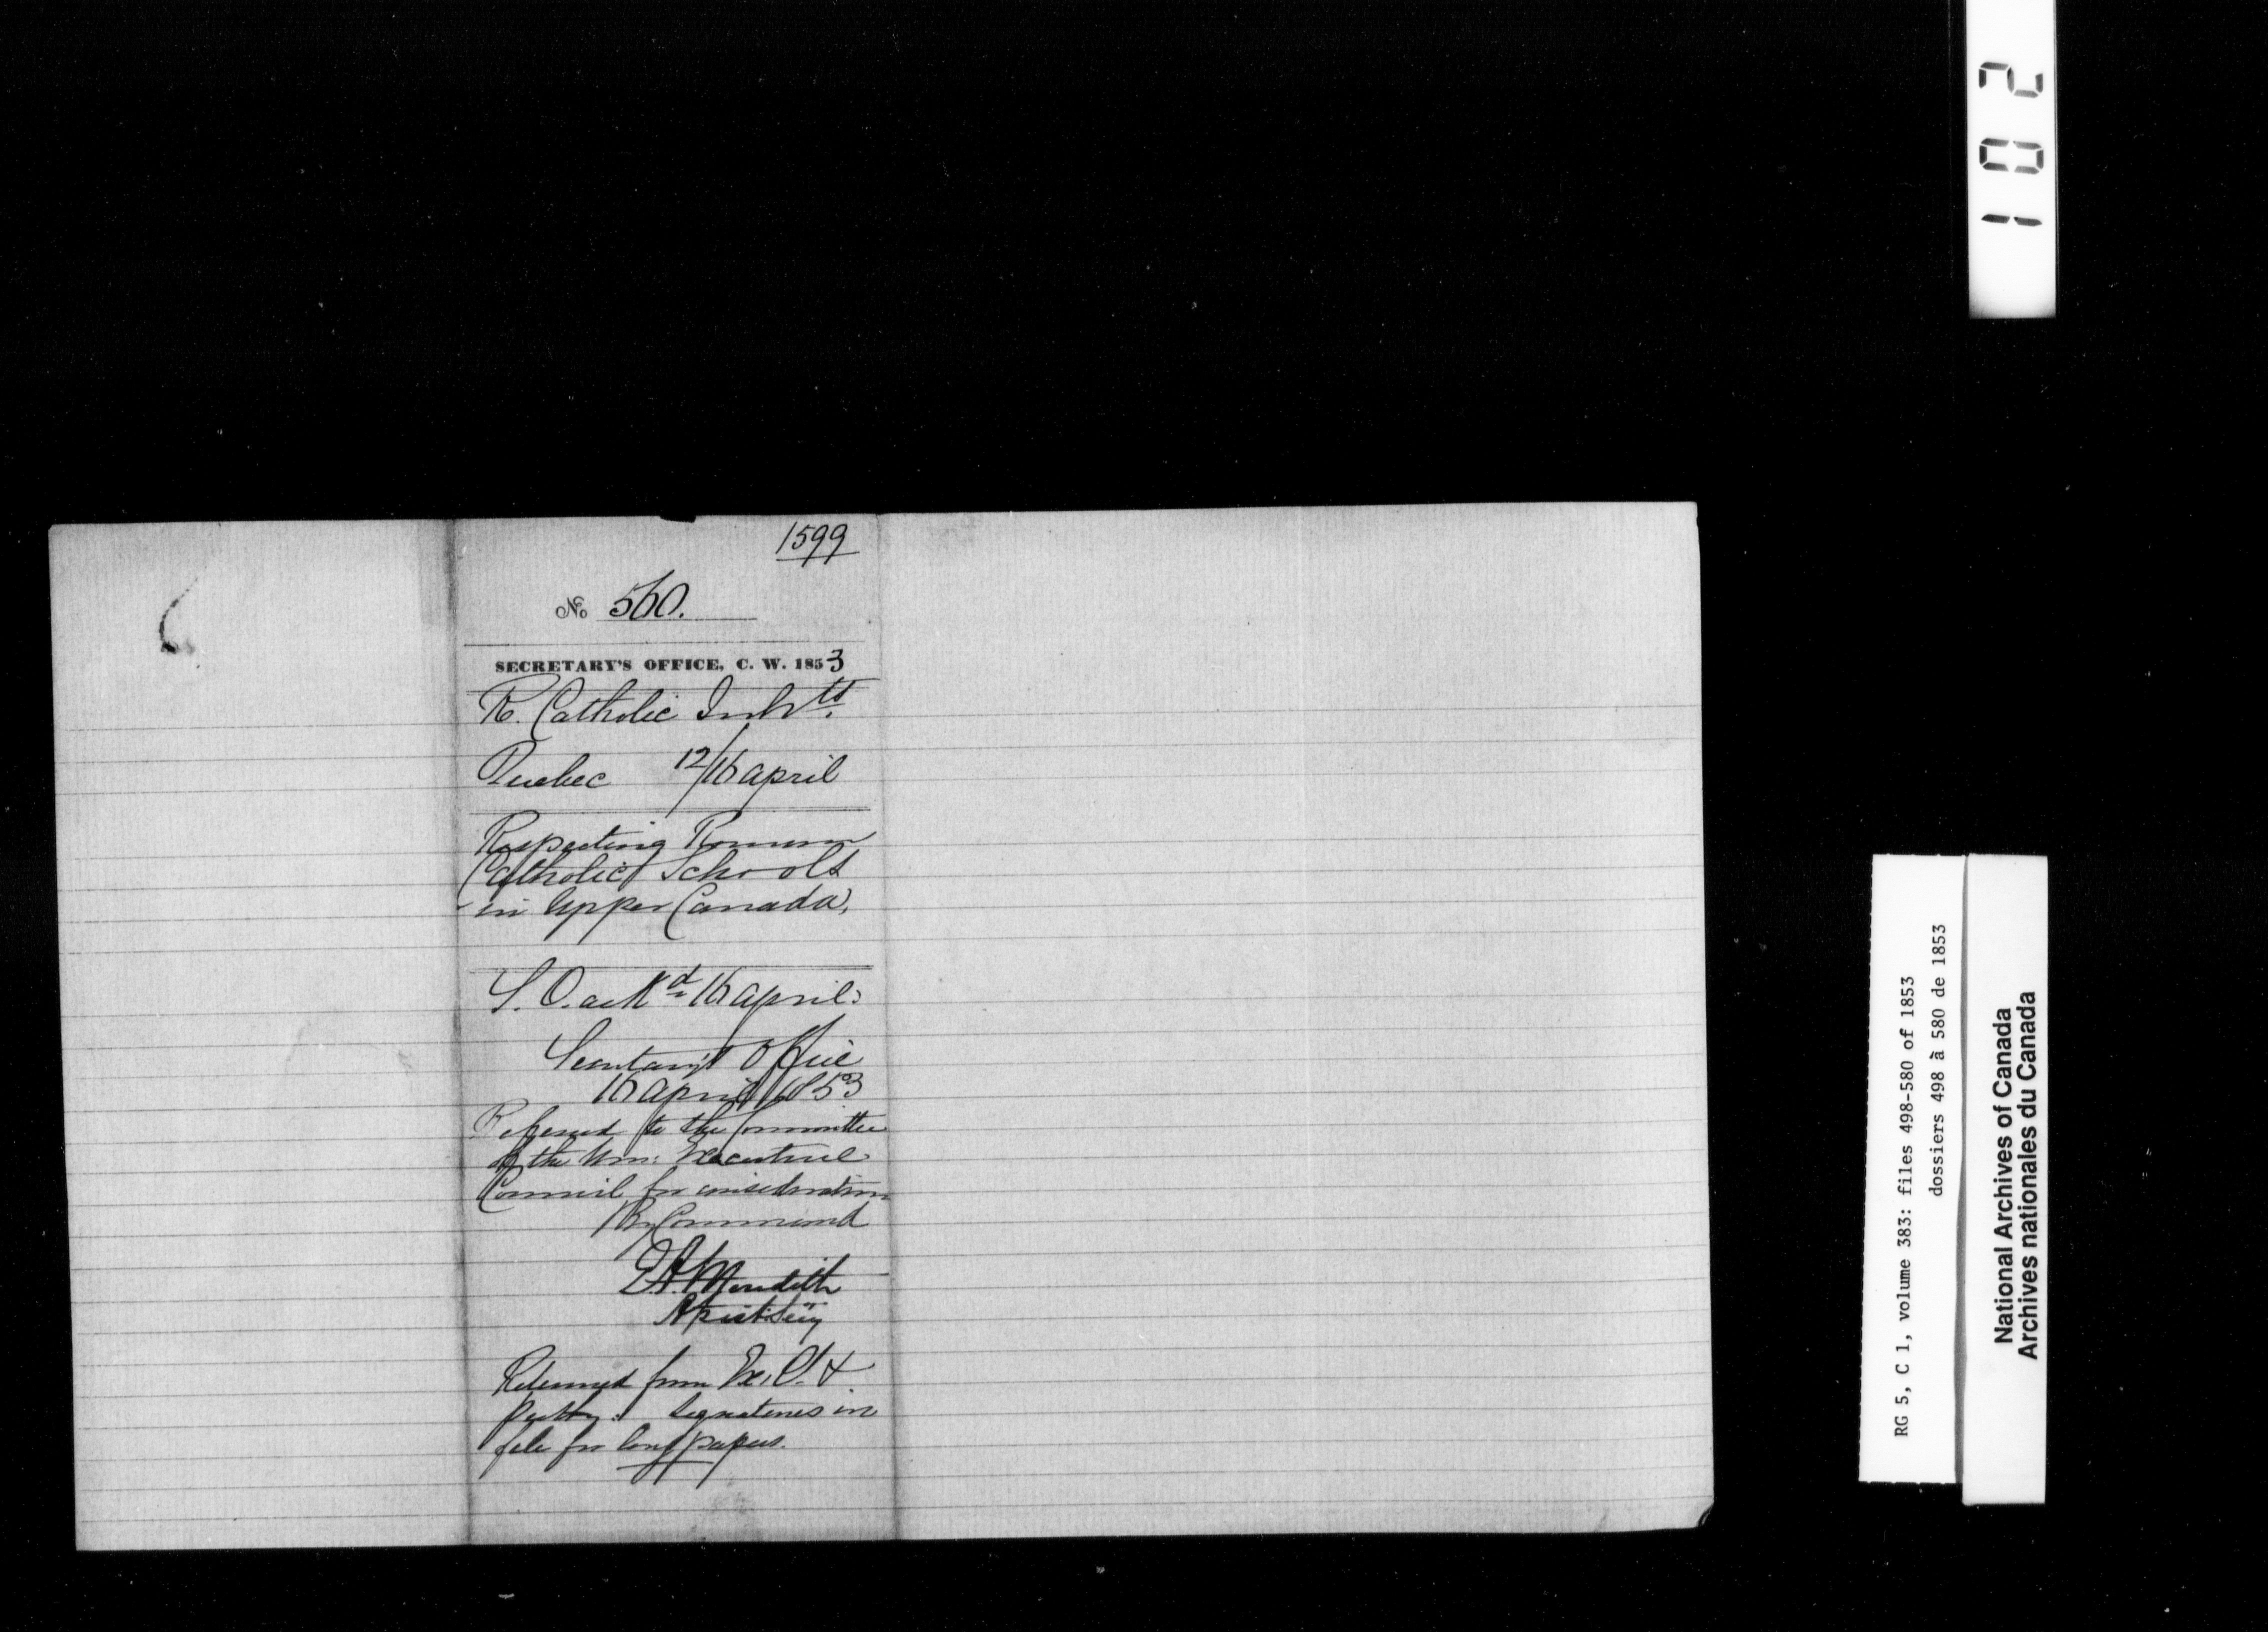 1599
No 560.
SECRETARY'S OFFICE, C. W. 1853
R. Catholic Inhts.
Quebec 12/16 April
Respecting Roman
Catholic Schools
in Upper Canada,
S. O. ackd 16 April.
Secretary's Office
16 April 1853
Referred to the Committee
of the Hon: Executive
Council for consideration
By Command
E. A. Meredith
Asist: Secy
Returned from Ex. C. &
signatures in
file for long papers.
102
RG 5, C 1, volume 383: files 498-580 of 1853
dossiers 498 à 580 de 1853
National Archives of Canada
Archives nationales du Canada